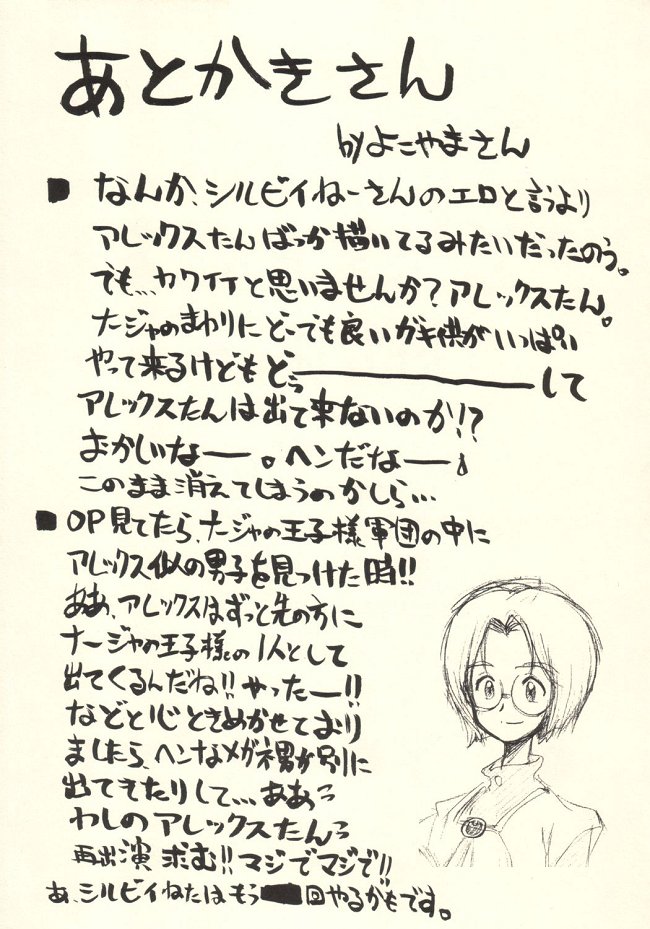 あとかきさん
byよこやまさん
■ なんか、シルビィねーさんのエロと言うより
アレックスたんばっか描いてるみたいだったのう。
でも…カワイイと思いませんか?アレックスたん。
ナージャのまわりにどーでも良いガキ供がいっぱい
やって来るけどもどぅ――――して
アレックスたんは出て来ないのか!?
おかしいなー。ヘンだなー。
このまま消えてしまうのかしら…
■ OP見てたら、ナージャの王子様軍団の中に
アレックス似の男子を見つけた時!!
ああ、アレックスはずっと先の方に
ナージャの王子様の1人として
出てくるんだね!!やったー!!
などと心ときめかせており
ましたら、ヘンなメガネ男が別に
出てきたりして…ああっ
わしのアレックスたんっ
再出演求む!!マジでマジで!!
あ、シルビィねたはもう回やるかもです。